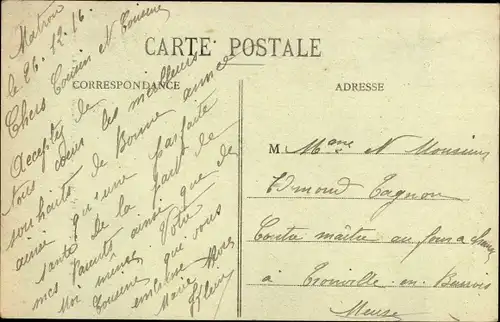 CARTE POSTALE
CORRESPONDANCE
ADRESSE
le 26.12.16.
Chers Cousin et Cousine
Acceptez de
tous cœur les meilleurs
souhaits de Bonne année
ainsi qu'une parfaite
santé De la part de
mes Parents ainsi que de
Moi même Votre
Cousine que vous
embrasse
Marie
M Mme N Monsieur
Edmond
Contre maître au four à chaux
à Tronville en Barrois
Meuse